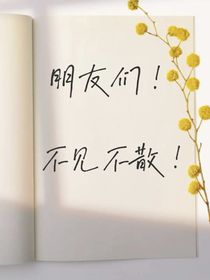 朋友们！
不见不散！